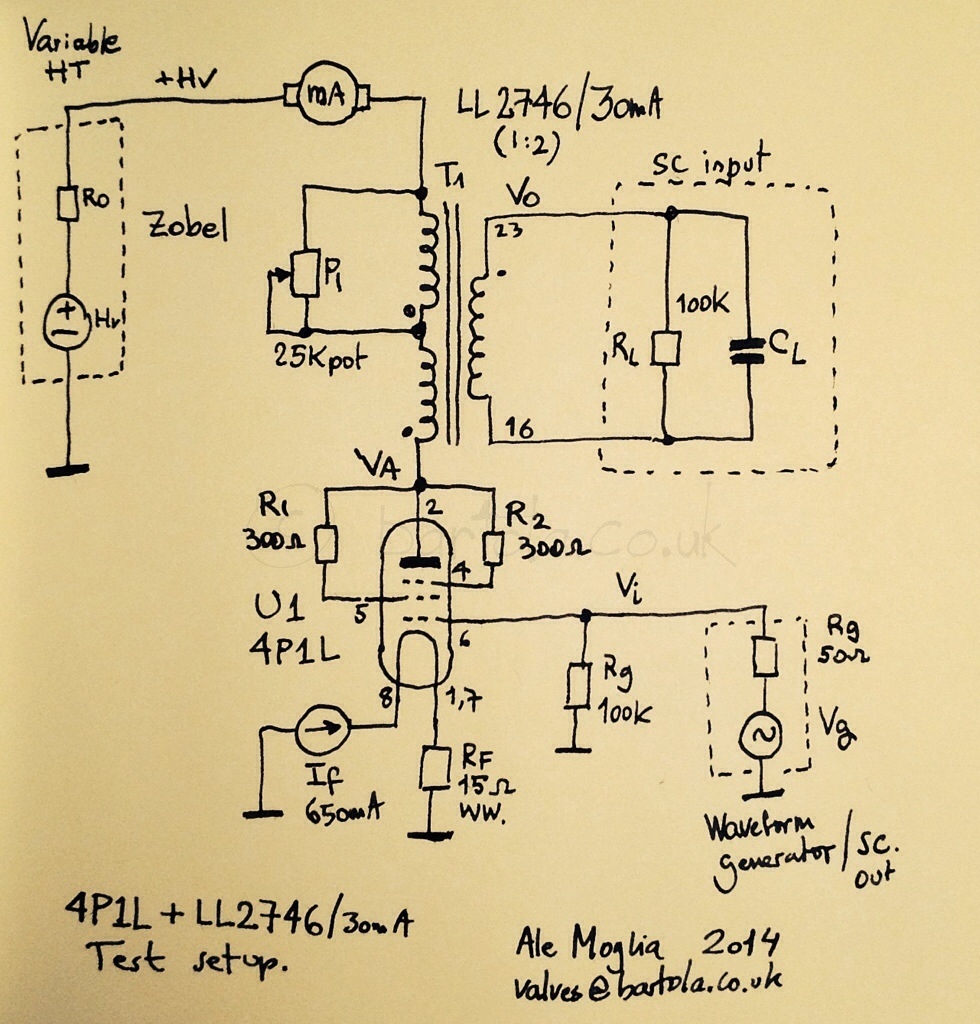 Variable
HT
+HV
mA
LL2746/30mA
(1:2)
SC input
T1
Vo
23
Ro
Zobel
P1
Hv
25K pot
100K
RL
CL
16
VA
R1
300Ω
2
R2
300Ω
4
5
U1
4P1L
6
Vi
Rg
50Ω
Rg
100K
8
1,7
Vg
If
650mA
RF
15Ω
WW.
Waveform
generator/SC.
out
4P1L + LL2746/30mA
Test setup.
Ale Moglia 2014
valves@bartola.co.uk
bartola.co.uk